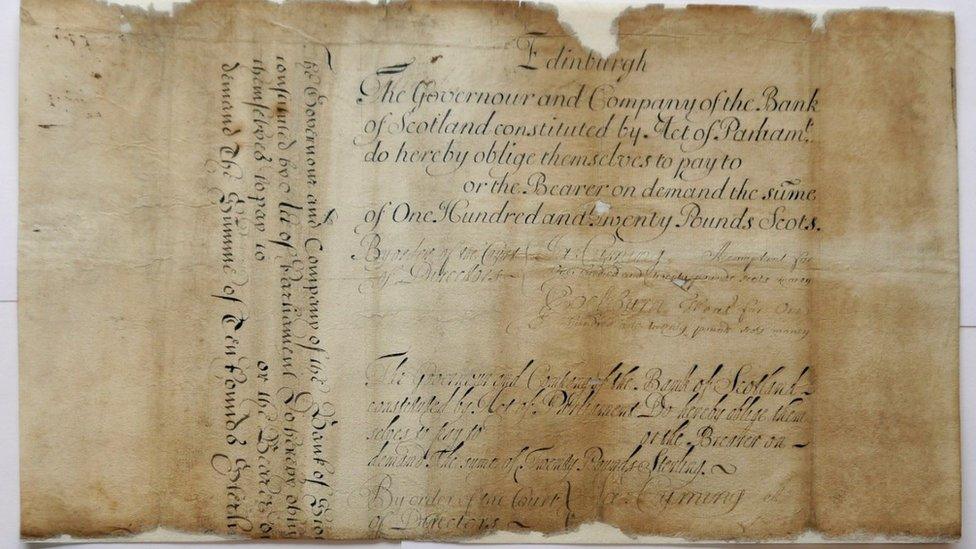 Edinburgh
The Governour and Company of the Bank
of Scotland constituted by Act of Parliamt.
do hereby oblige themselves to pay to
or the Bearer on demand the sume
of One Hundred and Twenty Pounds Scots.
By order of the Court
of Directors
Ja: Cuming Accomptant for
One hundred and twenty pounds scots money
for One
hundred and twenty pounds scots money
The Governour and Company of the Bank of Scotland
constituted by Act of Parliament Do hereby oblige them
selves to pay to or the Bearer on
demand the sume of Twenty Pounds Sterling.
By order of the Court
of Directors
Ja: Cuming
The Governour and Company of the Bank of Sco
constituted by Act of Parliament Do hereby oblig
themselves to pay to or the Bearer on
demand The Summe of Ten Pounds Sterli